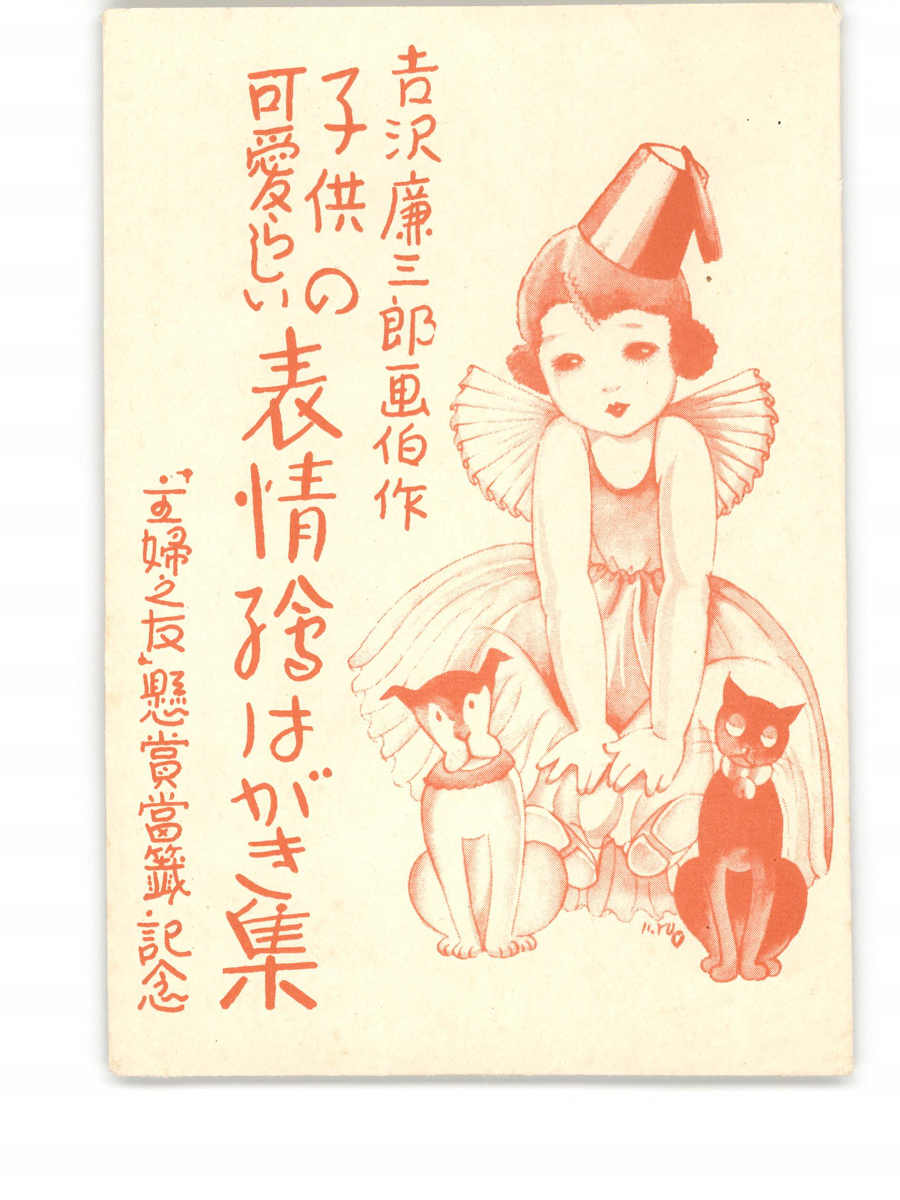 吉沢廉三郎画伯作
子供の
可愛らしい
表情絵はがき集
『主婦之友』懸賞當籤・記念